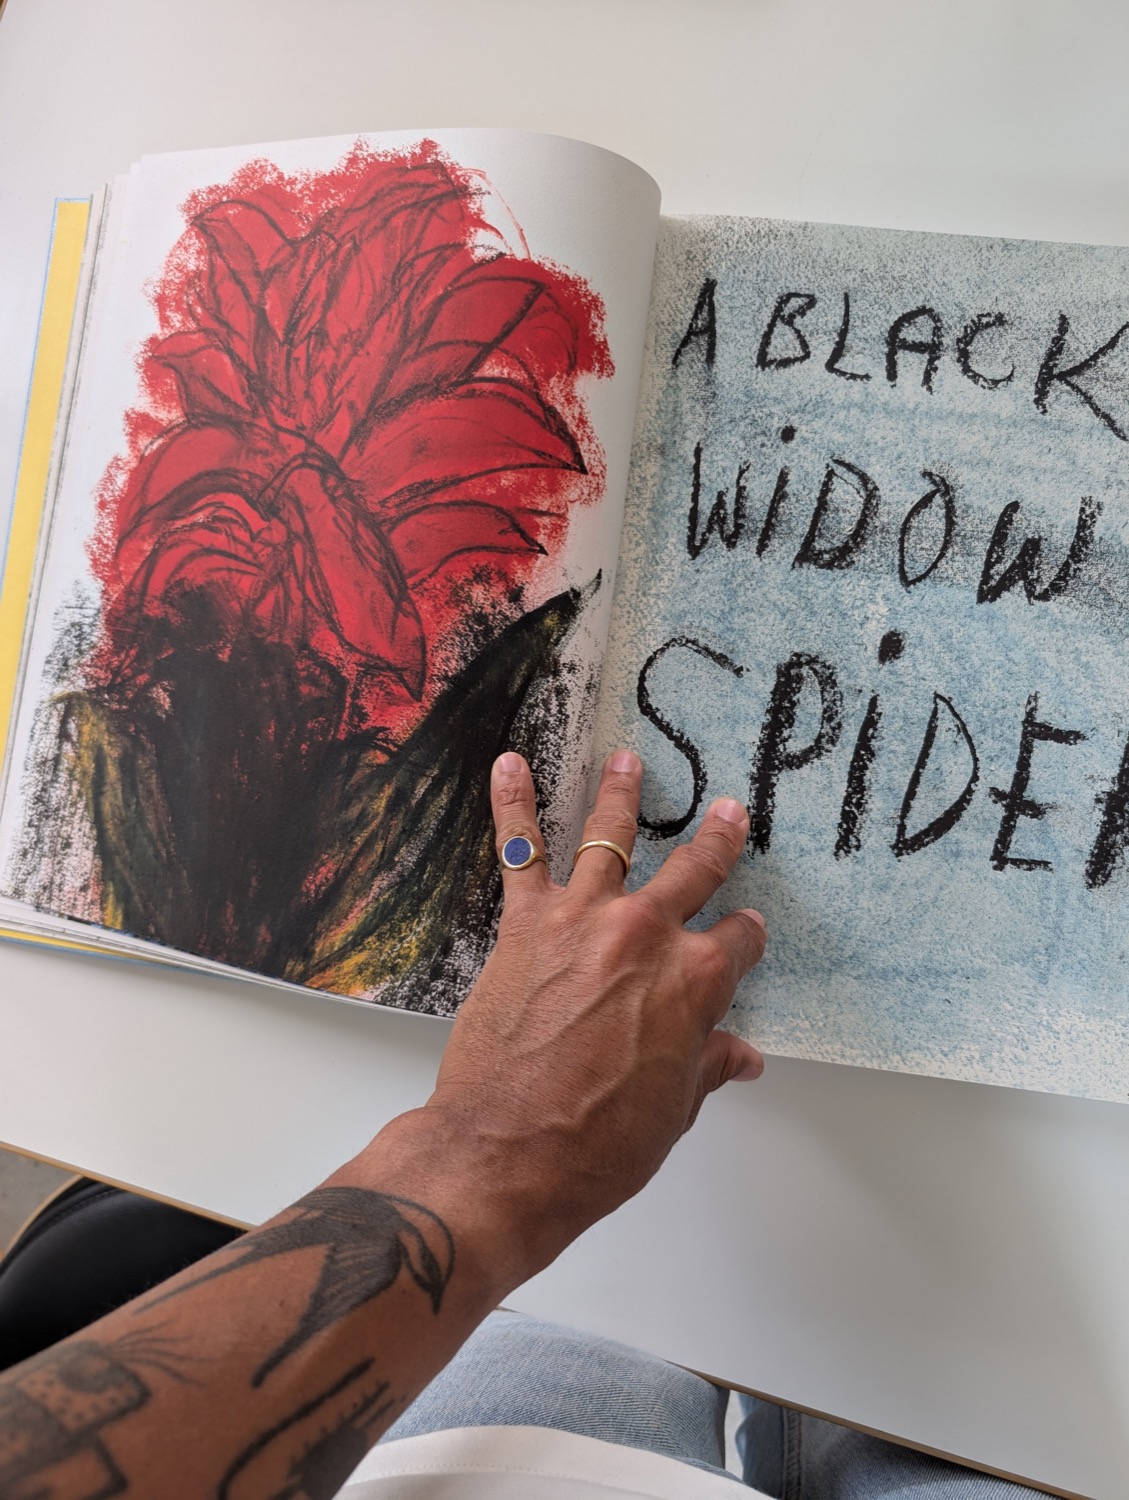 A BLACK
WiDOW
SPiDER